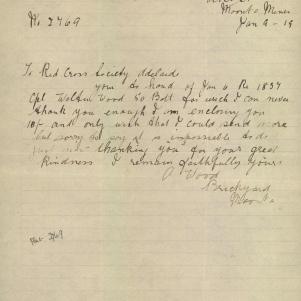 Moonta Mines
Jan 9 - 19
No 2469
To Red Cross Society Adelaide
yours to hand of Jan 6 Re 1837
Cpl Welton Wood 50 Batt for wich I can never
thank you enough I am enclosing you
10/- and only wish that I could send more
but sorry to say it is impossible to do
thanking you for your great
Kindness I remain faithfully yours
Wood
Brickyard
Moonta
2469